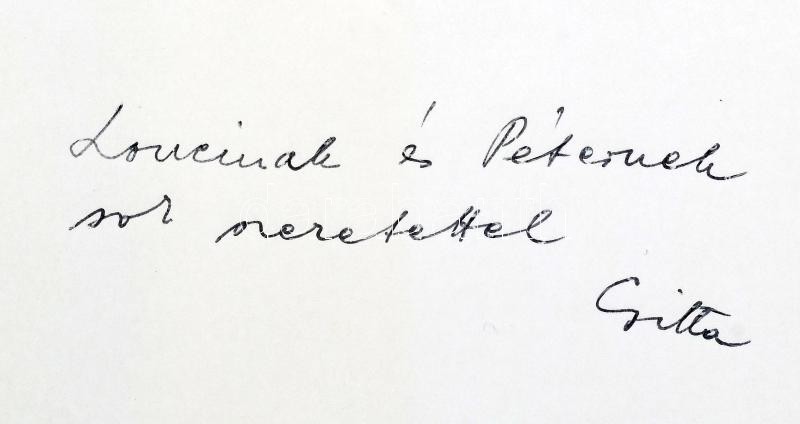 Loncinak és Péternek
sok szeretettel
Gitta